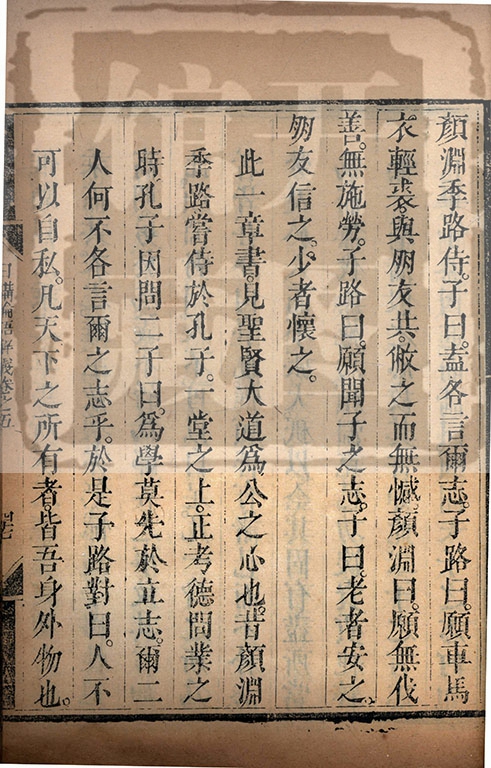 顏淵季路侍。子曰。盍各言爾志。子路曰。願車馬
衣輕裘與朋友共。敝之而無憾。顏淵曰。願無伐
善。無施勞。子路曰。願聞子之志。子曰。老者安之。
朋友信之。少者懷之。
此一章書。見聖賢大道爲公之心也。昔顏淵
季路嘗侍於孔子。一堂之上。正考德問業之
時。孔子因問二子曰。爲學莫先於立志。爾二
人何不各言爾之志乎。於是子路對曰。人不
可以自私。凡天下之所有者。皆吾身外物也。
日講論語解義卷之五